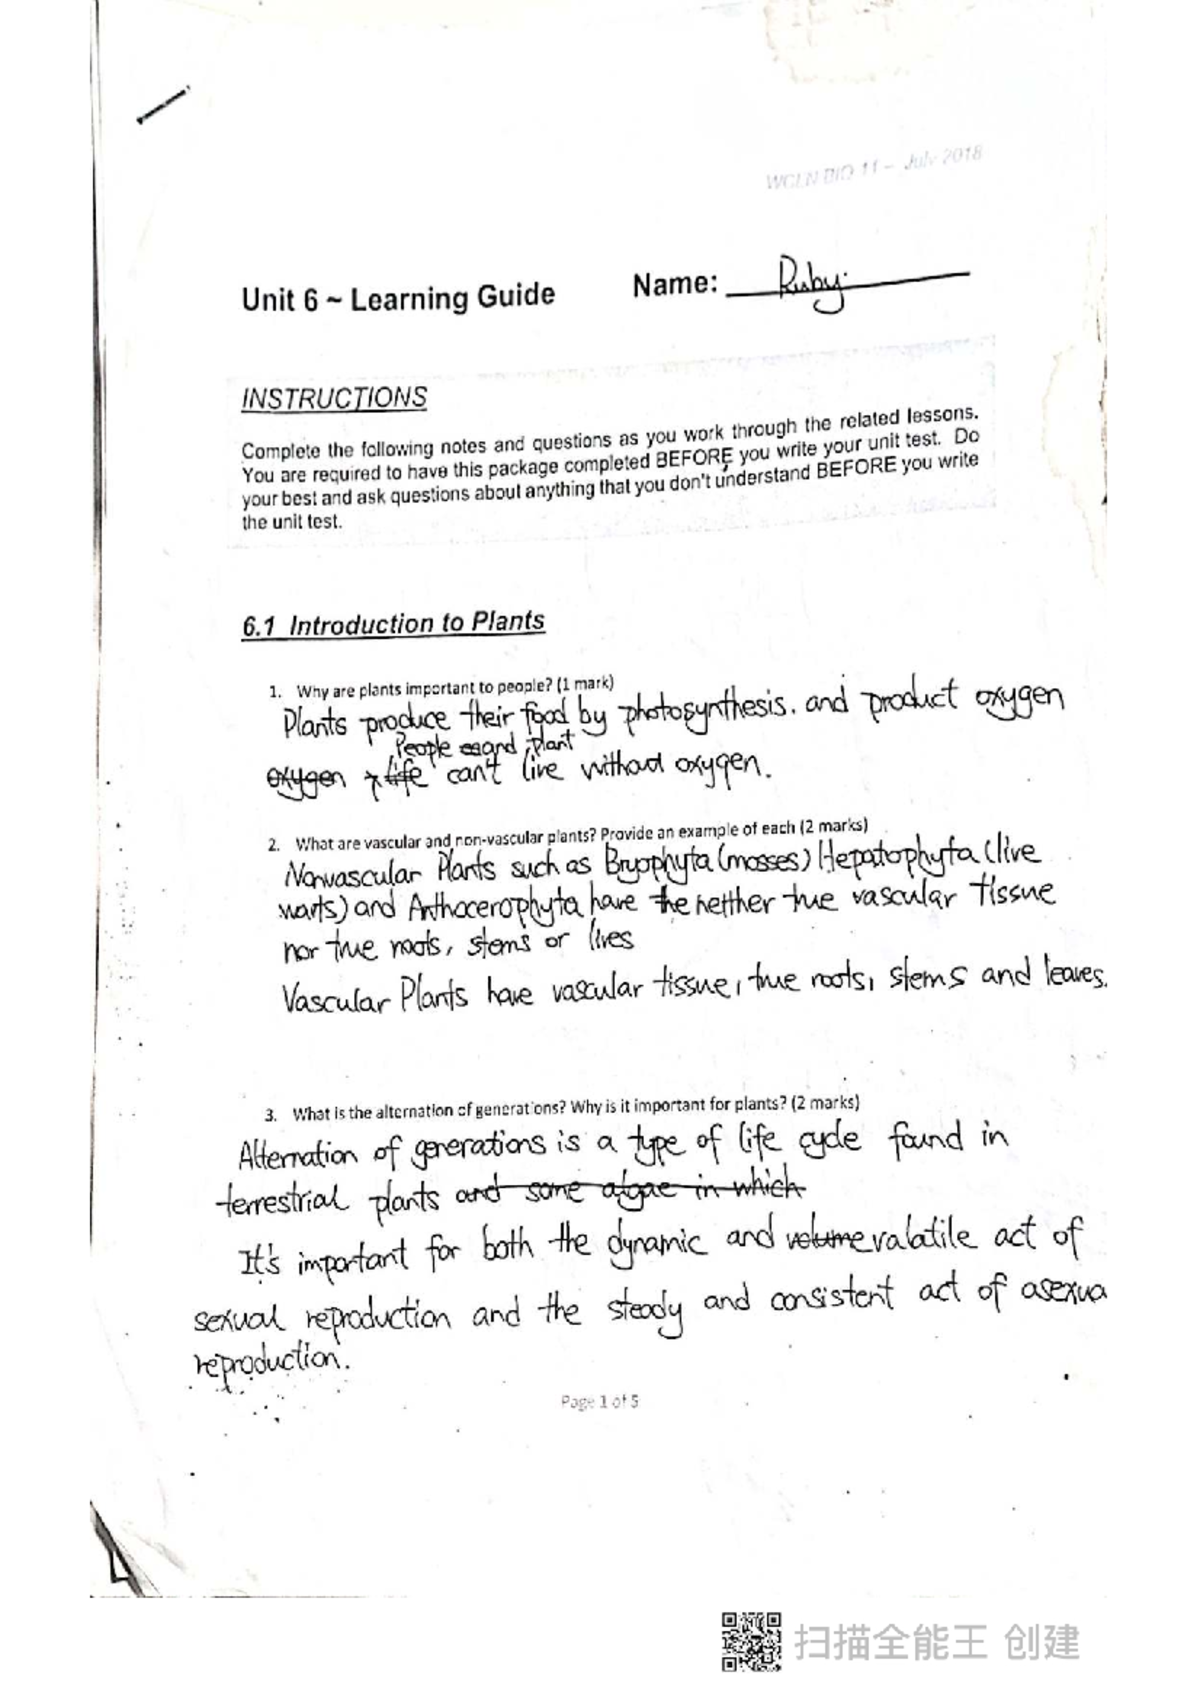 WCLN BIO 11 - July 2018
Unit 6 ~ Learning Guide Name: Ruby
INSTRUCTIONS
Complete the following notes and questions as you work through the related lessons.
You are required to have this package completed BEFORE you write your unit test. Do
your best and ask questions about anything that you don't understand BEFORE you write
the unit test.
6.1 Introduction to Plants
1. Why are plants important to people? (1 mark)
Plants produce their food by photosynthesis. and product oxygen
People and plant
oxygen life can't live without oxygen.
2. What are vascular and non-vascular plants? Provide an example of each (2 marks)
Nonvascular Plants such as Bryophyta (mosses) Hepatophyta (live
warts) and Anthocerophyta have the neither true vascular tissue
nor true roots, stems or lives
Vascular Plants have vascular tissue, true roots, stems and leaves.
3. What is the alternation of generations? Why is it important for plants? (2 marks)
Alternation of generations is a type of life cycle found in
terrestrial plants and some algae in which
It's important for both the dynamic and volume valatile act of
sexual reproduction and the steady and consistent act of asexua
reproduction.
Page 1 of 5
扫描全能王 创建